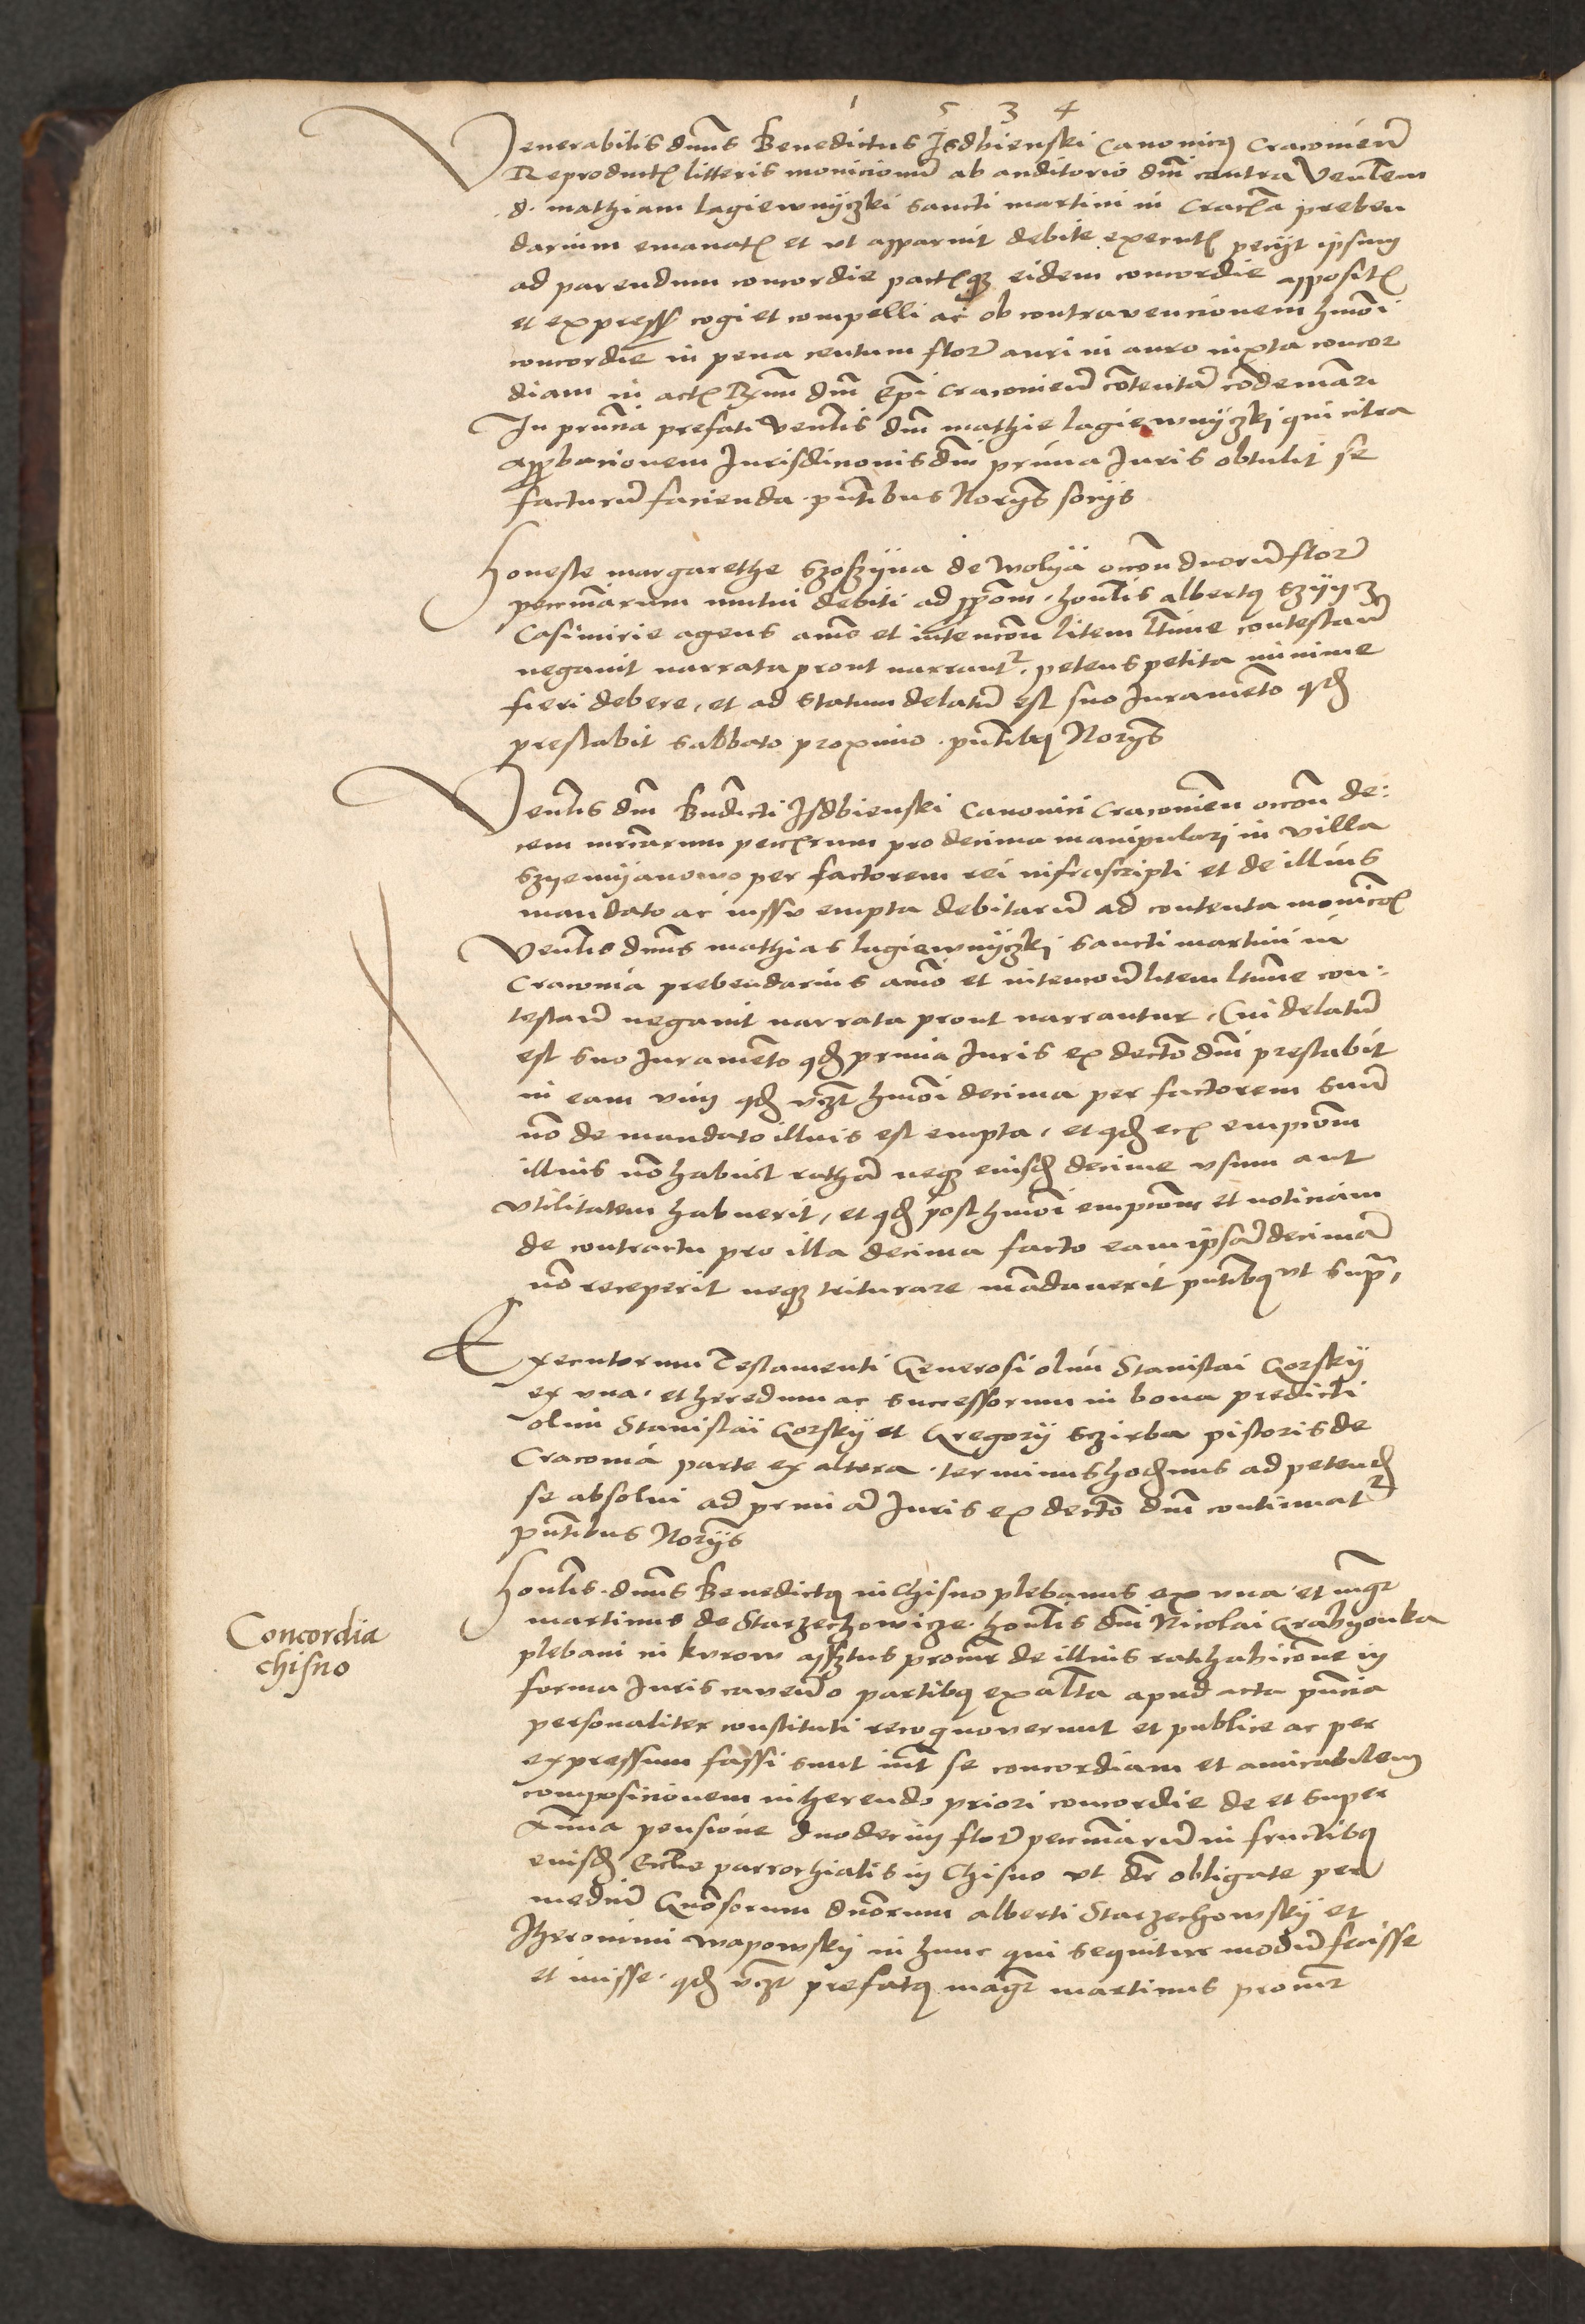 1 5 3 4
Venerabilis dnus Benedictus Isdbienski Canonicus Cracovien
Reproductis litteris monicionum ab auditorio dni contra Venlem
d. mathiam lagiewnyczki sancti martini in Cracovia preben
darium emanatis et ut apparuit debite executis petyt ipsum
ad parendum concordie pactisque eidem concordie appositis
et expressis cogi et compelli ac ob contravencionem hmoi
concordie in pena centum flor auri in auro iuxta concor
diam in actis Rmi dni Epi Cracovien contentam condemnari
In pncia prefati Venlis dni mathie lagiewnyczki qui citra
approbacionem Jurisdicionis dni prima Juris obtulit se
facturum facienda. pntibus Norys socys
Honeste margarethe de Wolya occon duorum flor
pecuniarum mutui debiti ad honlis albertus
Casimirie agens animo et intencon litem ltime contestan
negavit narrata prout narrantur, petens petita minime
fieri debere, et ad statum delatum est suo Juramento qd
prestabit sabbato proximo. pntibus Norys
Venlis dni Bndicti Isdbienski Canonici Cracovien occon de:
cem mrcarum pro decima manipulari in villa
Szyemyanowo per factorem rei infrascripti et de illius
mandato ac iussu empta debitarum ad contenta monicois
Venlis dnus mathias lagiewnyczki sancti martini in
Cracovia prebendarius animo et intencon litem ltime con:
testan negavit narrata prout narrantur, Cui delatum
est suo Juramento qd prima Juris ex decto dni prestabit
in eam vim qd vzt hmoi decima per factorem suum
no de mandato illius est empta, et qd empcom
illius no habuit ratham neque eiusd decime usum aut
utilitatem habuerit, et qd post hmoi empcom et noticiam
de contractu pro illa decima facto eam ipsam decimam
no receperit neque triturare mandaverit pntibus ut supra,
Executorum Testamenti Generosi olim Stanislai Gorsky
ex una. et heredum ac successorum in bona predicti
olim Stanislai Gorsky et Gregory sczirba pistoris de
Cracovia parte ex altera. terminus hodiernus ad petend
se absolvi ad primam Juris ex decto dni continuatur
pntibus Norys
Honlis. dnus Benedictus in Chisno plebanus ex una. et mgr
martinus de Starzechowicze. honlis dni Nicolai Grabyonka
plebani in kurow assertus procur de illius ratihabicone in
forma Juris cavendo partibus ex alta apud acta pncia
personaliter constituti recognoverunt et publice ac per
expressum fassi sunt int se concordiam et amicabilem
composicionem inherendo priori concordie de et super
Annua pensione duodecim flor pecuniarum in fructibus
eiusd Ecclie parrochialis in Chisno ut dr obligate per
medium Gnosorum dnorum alberti Starzechowsky et
Hieronimi wapowsky in hunc qui sequitur modum fecisse
et inisse. qd vzt prefatus magr martinus procur
Concordia
chisno